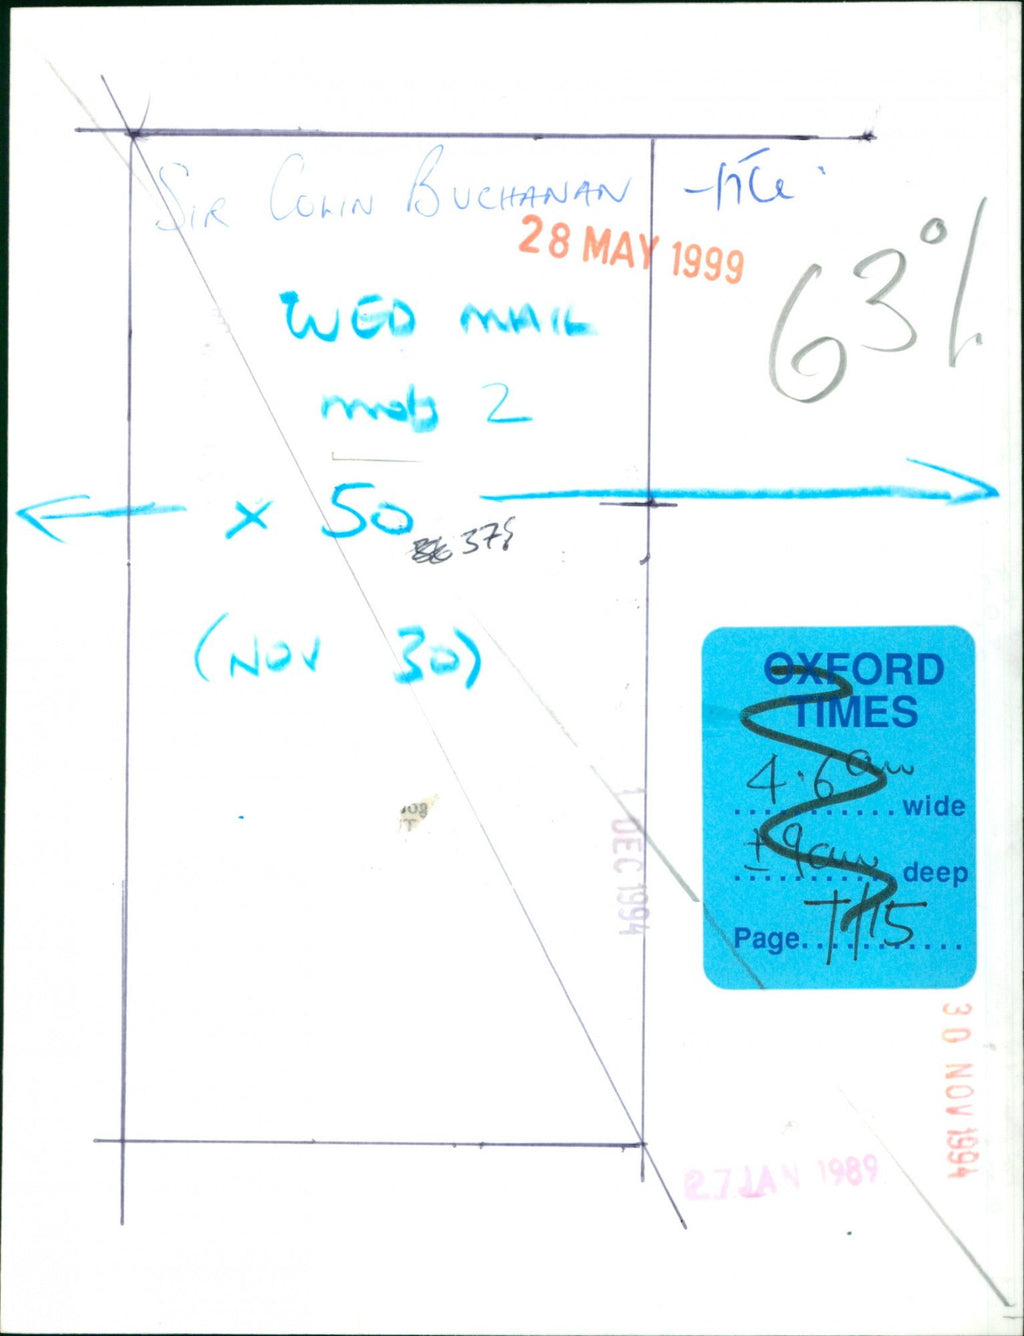 SIR COLIN BUCHANAN - file
28 MAY 1999
63%
WED MAIL
mob 2
x 50
37%
(NOV 30)
OXFORD
TIMES
4.6cm wide
±9cm deep
Page 7/15
1 DEC 1994
30 NOV 1994
27 JAN 1989